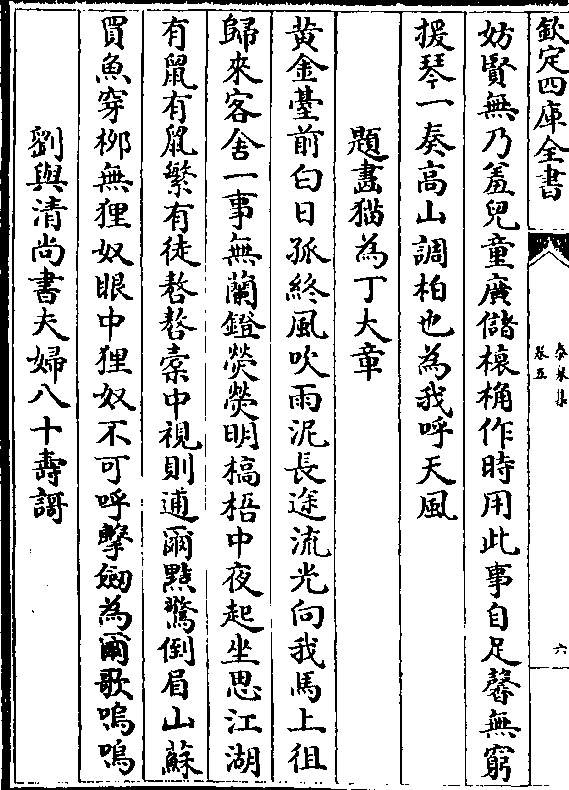 欽定四庫全書
卷五
六
妨賢無乃羞兒童廣儲榱桷作時用此事自足馨無窮
援琴一奏高山調柏也為我呼天風
題畫猫為丁大章
黃金臺前白日孤終風吹雨泥長途流光向我馬上徂
歸來客舍一事無蘭鐙熒熒明槁梧中夜起坐思江湖
有鼠有鼠繁有徒嗸嗸橐中視則逋爾黠驚倒眉山蘇
買魚穿柳無狸奴眼中狸奴不可呼擊劒為爾歌嗚嗚
劉與清尚書夫婦八十壽謌